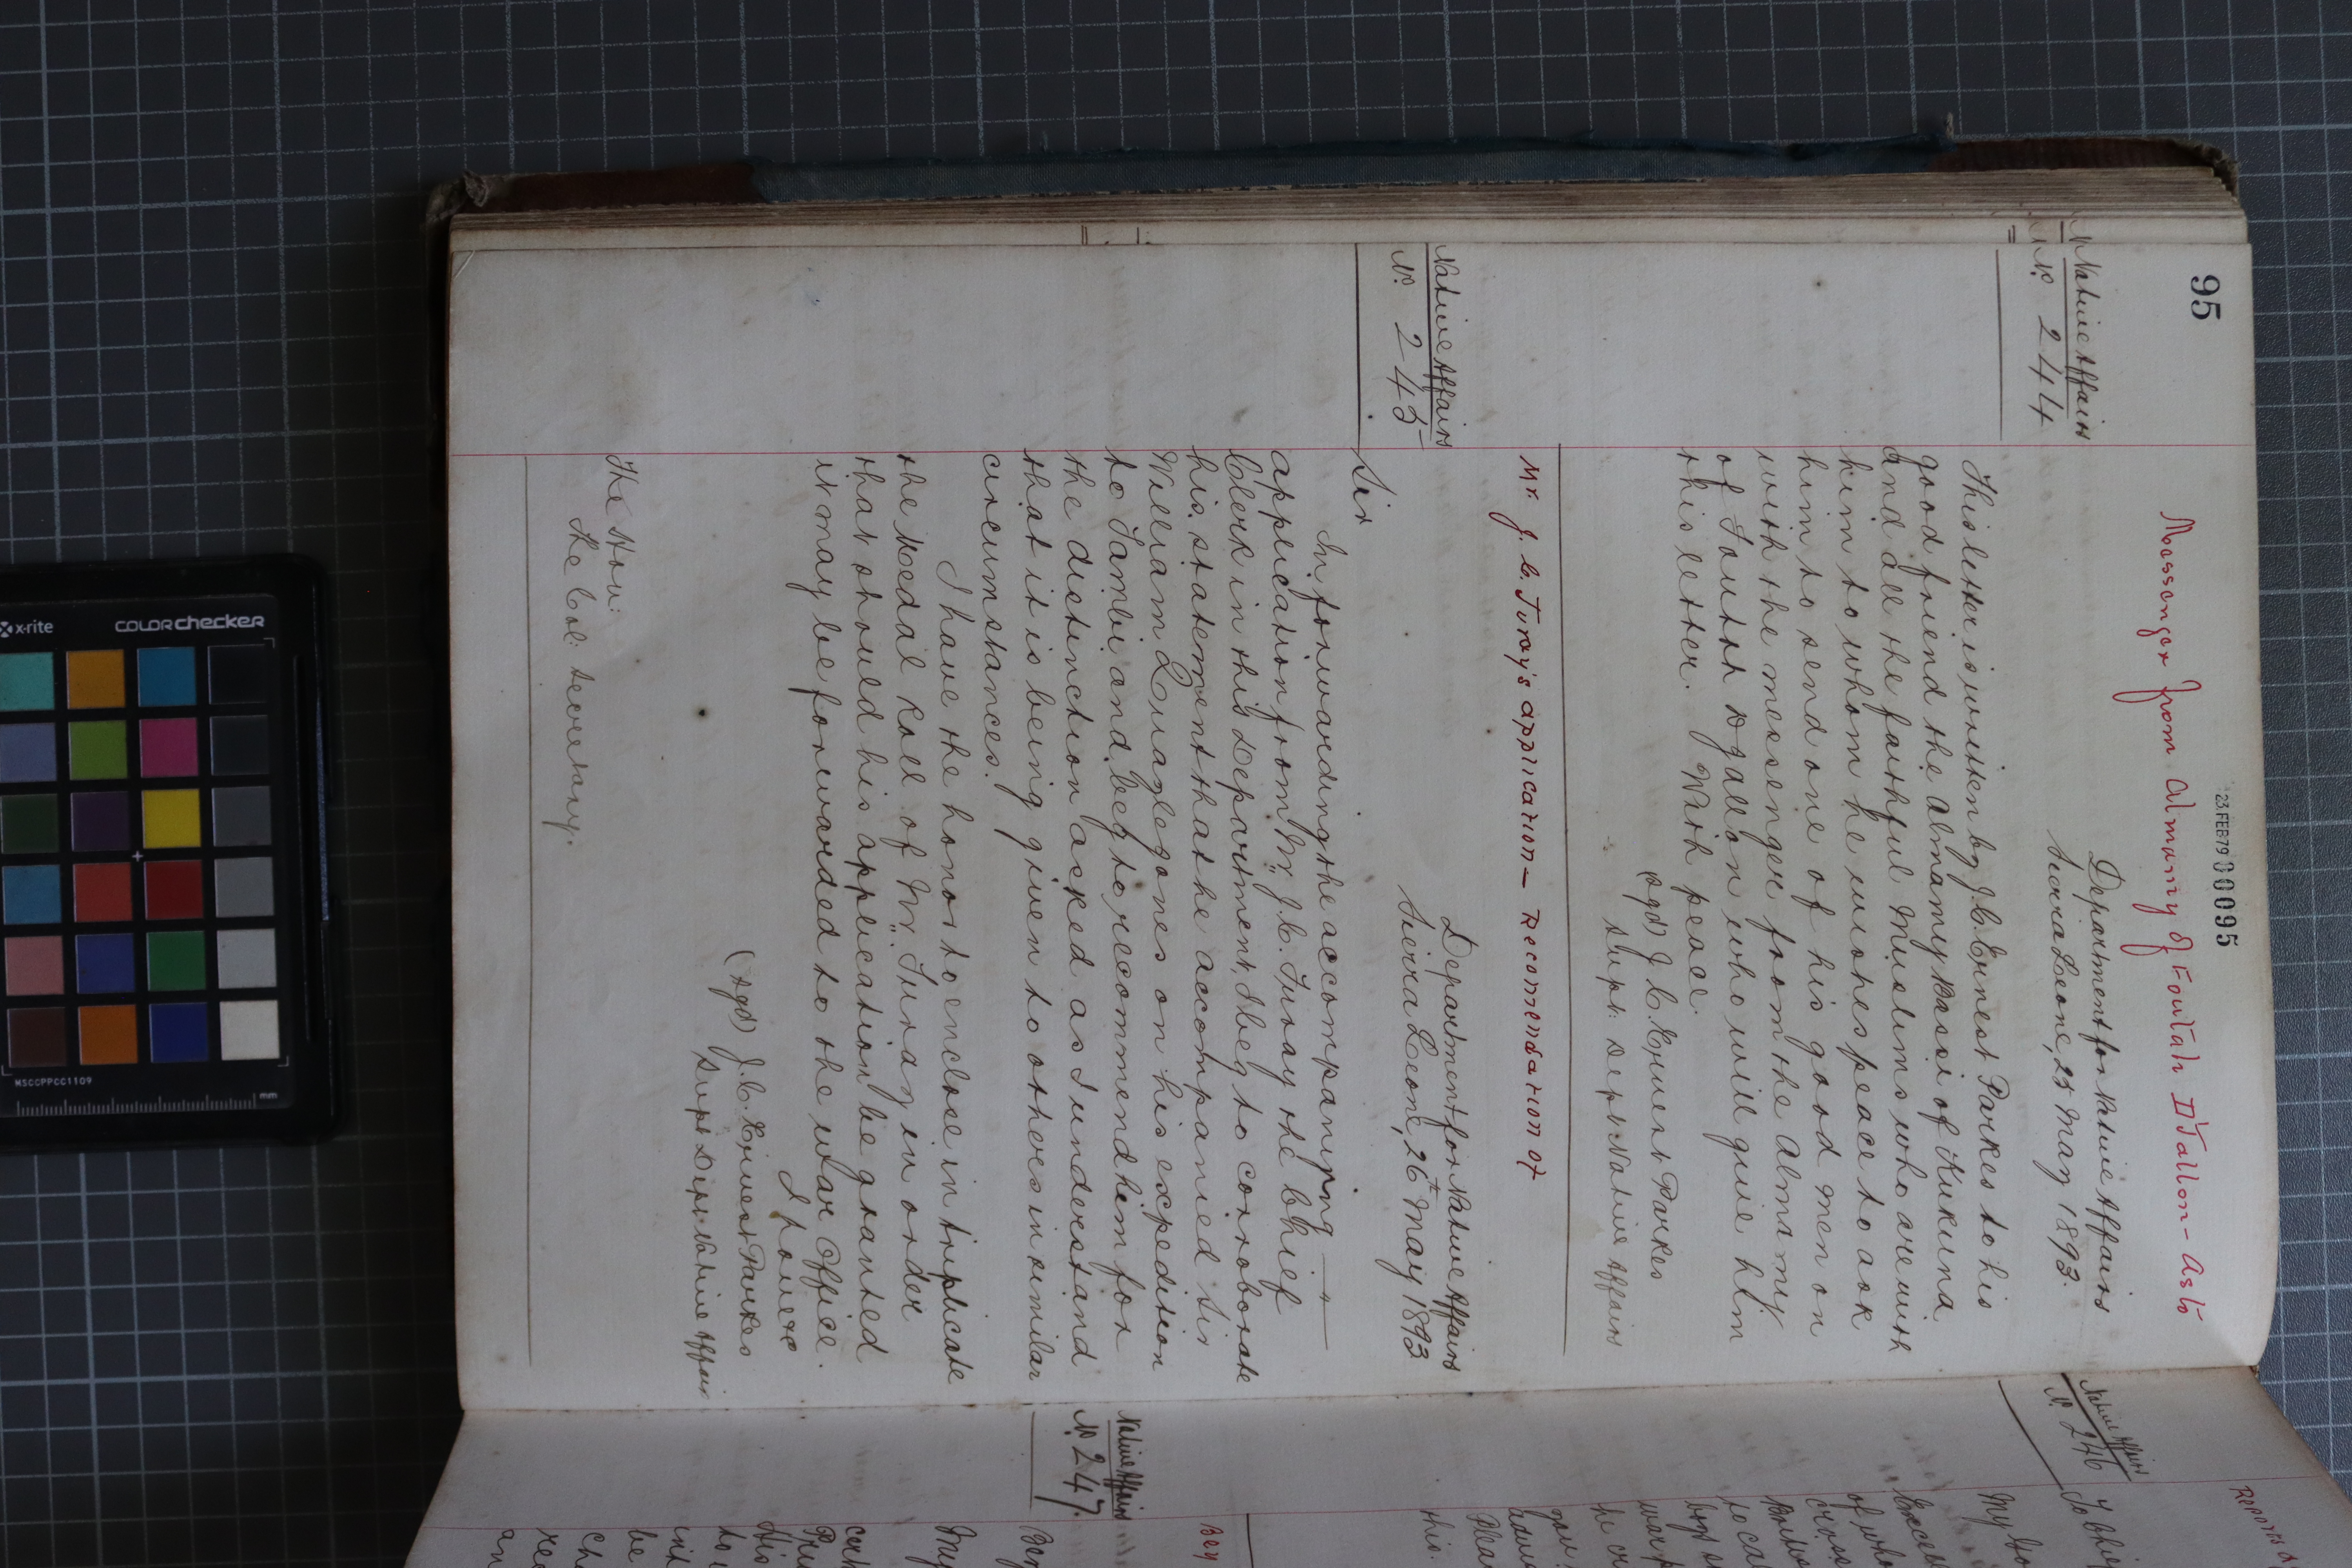 95
23.FEB79 00095
Messenger from Almamy of Foutah D'Jallon - As to
Native Affairs
No. 244
Department for Native Affairs
Sierra Leone, 25 May 1893.
This letter is written by J.C. Ernest Parkes to his
good friend the Almamy Bassi of Kukuna
and all the faithful Muslims who are with
him to whom he wishes peace to ask
him to send one of his good men on
with the messenger from the Almamy
of Foutah Djallon who will give him
this letter. With peace.
(sgd) J. C. Ernest Parkes
Supt: Dept Native Affairs
Mr. J. C. Turay's application - Recomendation of
Native Affairs
No. 245
Department for Native Affairs
Sierra Leone, 26t May 1893
Sir
In forwarding the accompanying
application from Mr. J. C. Turay the Chief
Clerk in this Department, I beg to corroborate
his statement that he accompanied Sir
William Quaylejones on his expedition
to Tambi and beg to recommend him for
the distinction asked as I understand
that it is being given to others in similar
circumstances.
I have the honor to enclose in triplicate
the Medal Roll of Mr. Turay in order
that should his application be granted
it may be forwarded to the War Office.
I have &c
(sgd) J. C. Ernest Parkes
Supt Dept. Native Affairs
The Hon:
the Col: Secretary.
Native Affairs
No. 246
Native Affairs
No. 247.
My
of
the
this
Bey
My
be
an
x-rite
colorchecker
MSCCPPCC1109
mm